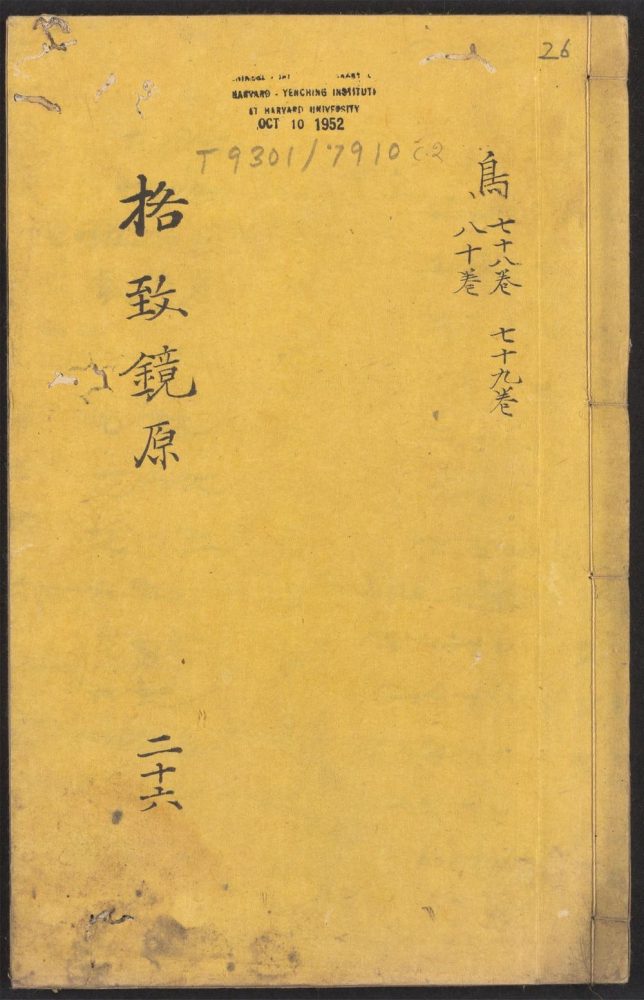 26
HARVARD - YENCHING INSTITUTE
AT HARVARD UNIVERSITY
OCT 10 1952
T 9301/7910 C2
鳥
七十八卷 七十九卷
八十卷
格致鏡原
二十六